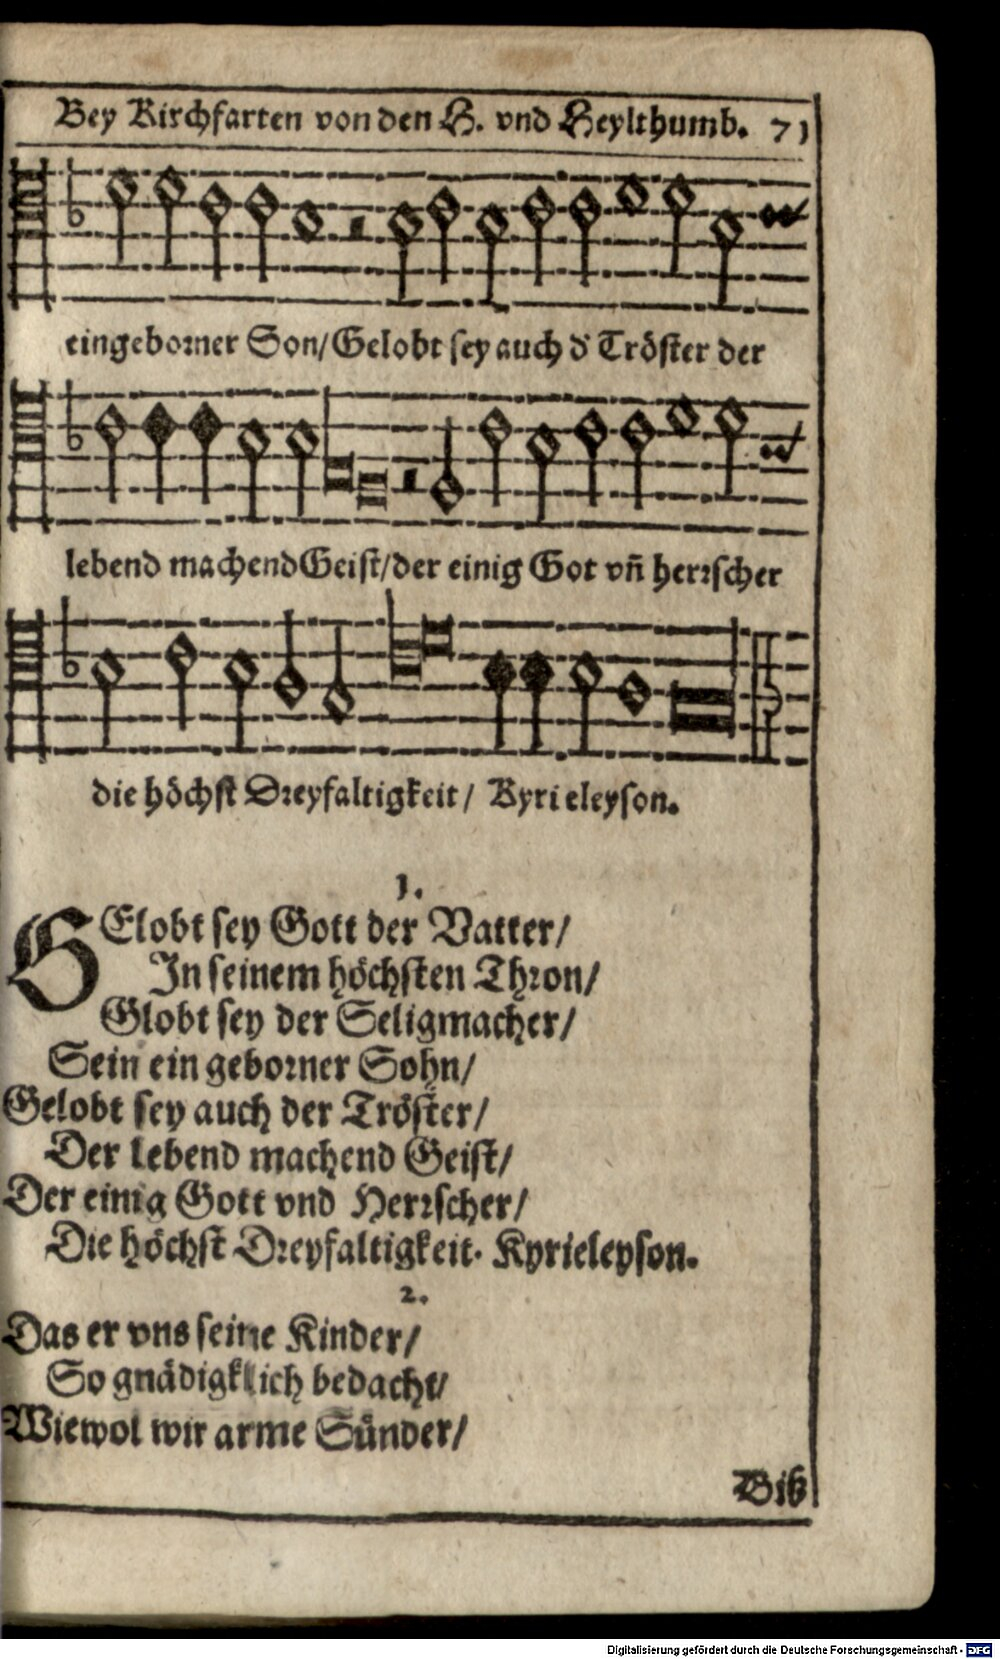 Bey Kirchfarten von den H. vnd Heylthumb. 71
eingeborner Son/ Gelobt sey auch d̕ Tröster der
lebend machend Geist/ der einig Got vñ herrscher
die höchst Dreyfaltigkeit/ Kyri eleyson.
1.
GElobt sey Gott der Vatter/
In seinem höchsten Thron/
Globt sey der Seligmacher/
Sein ein geborner Sohn/
Gelobt sey auch der Tröster/
Der lebend machend Geist/
Der einig Gott vnd Herrscher/
Die höchst Dreyfaltigkeit. Kyrieleyson.
2.
Das er vns seine Kinder/
So gnädigklich bedacht/
Wiewol wir arme Sünder/
Biß
Digitalisierung gefördert durch die Deutsche Forschungsgemeinschaft - DFG